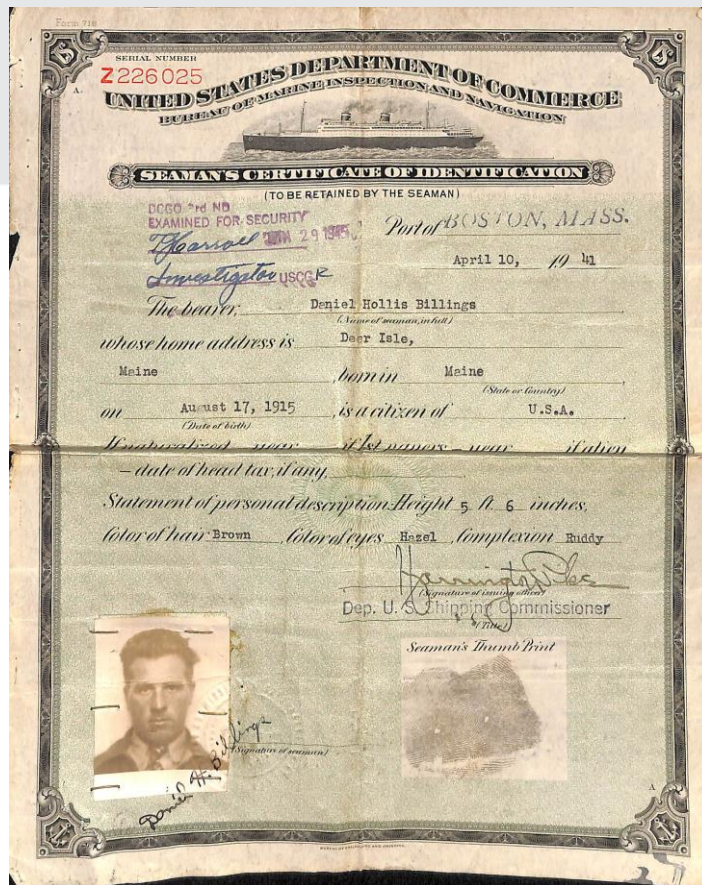 Form 718
SERIAL NUMBER
Z226025
A.
UNITED STATES DEPARTMENT OF COMMERCE
BUREAU OF MARINE INSPECTION AND NAVIGATION
SEAMAN'S CERTIFICATE OF IDENTIFICATION
(TO BE RETAINED BY THE SEAMAN)
DCGO rd ND
EXAMINED FOR SECURITY
29 1945
Investigator USCGR
Port of BOSTON, MASS.
April 10, 19 41
The bearer, Daniel Hollis Billings
(Name of seaman, in full)
whose home address is Deer Isle,
Maine , born in Maine
(State or Country)
on August 17, 1915 , is a citizen of U.S.A.
(Date of birth)
If naturalized – year if 1st papers – year if alien
– date of head tax, if any,
Statement of personal description, Height 5 ft. 6 inches,
Color of hair Brown , Color of eyes Hazel , Complexion Ruddy
(Signature of issuing officer)
Dep. U. S. Shipping Commissioner
(Title)
Seaman's Thumb Print
Daniel H. Billings
(Signature of seaman)
A